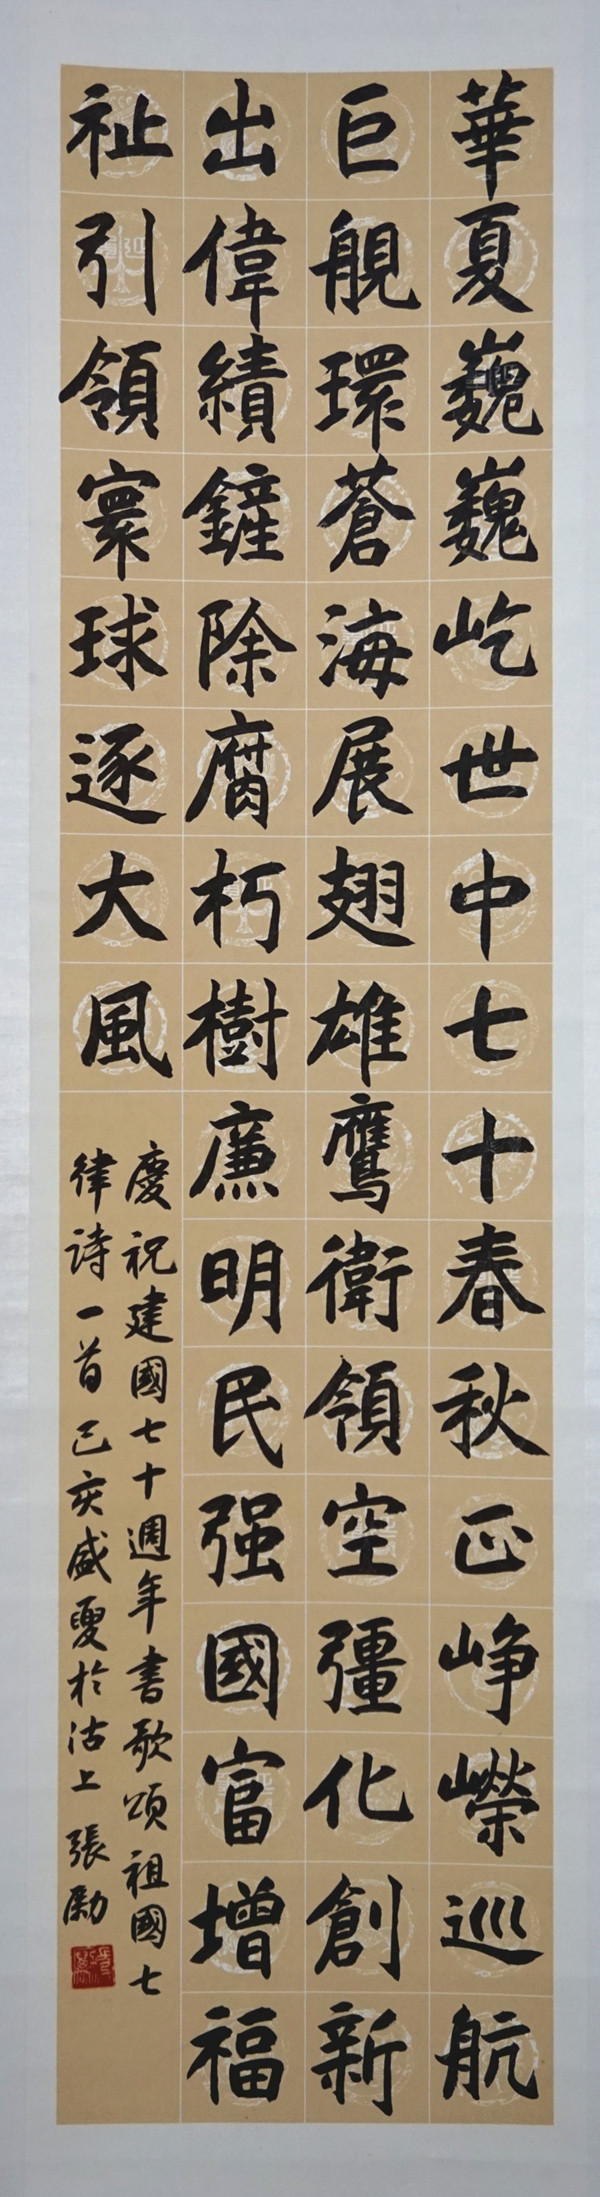 華夏巍巍屹世中七十春秋正崢嶸巡航
巨舰環蒼海展翅雄鷹衛領空彊化創新
出偉績鏟除腐朽樹廉明民强國富增福
祉引領寰球逐大風
慶祝建國七十週年書歌頌祖國七
律詩一首己亥盛夏於沽上張勵